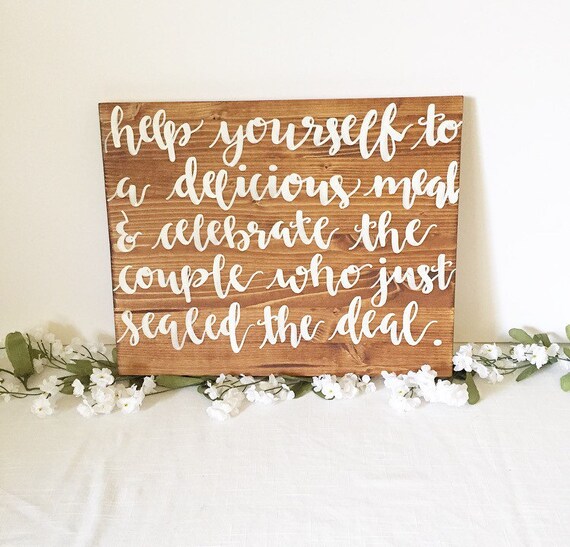 help yourself to
a delicious meal
& celebrate the
couple who just
sealed the deal.